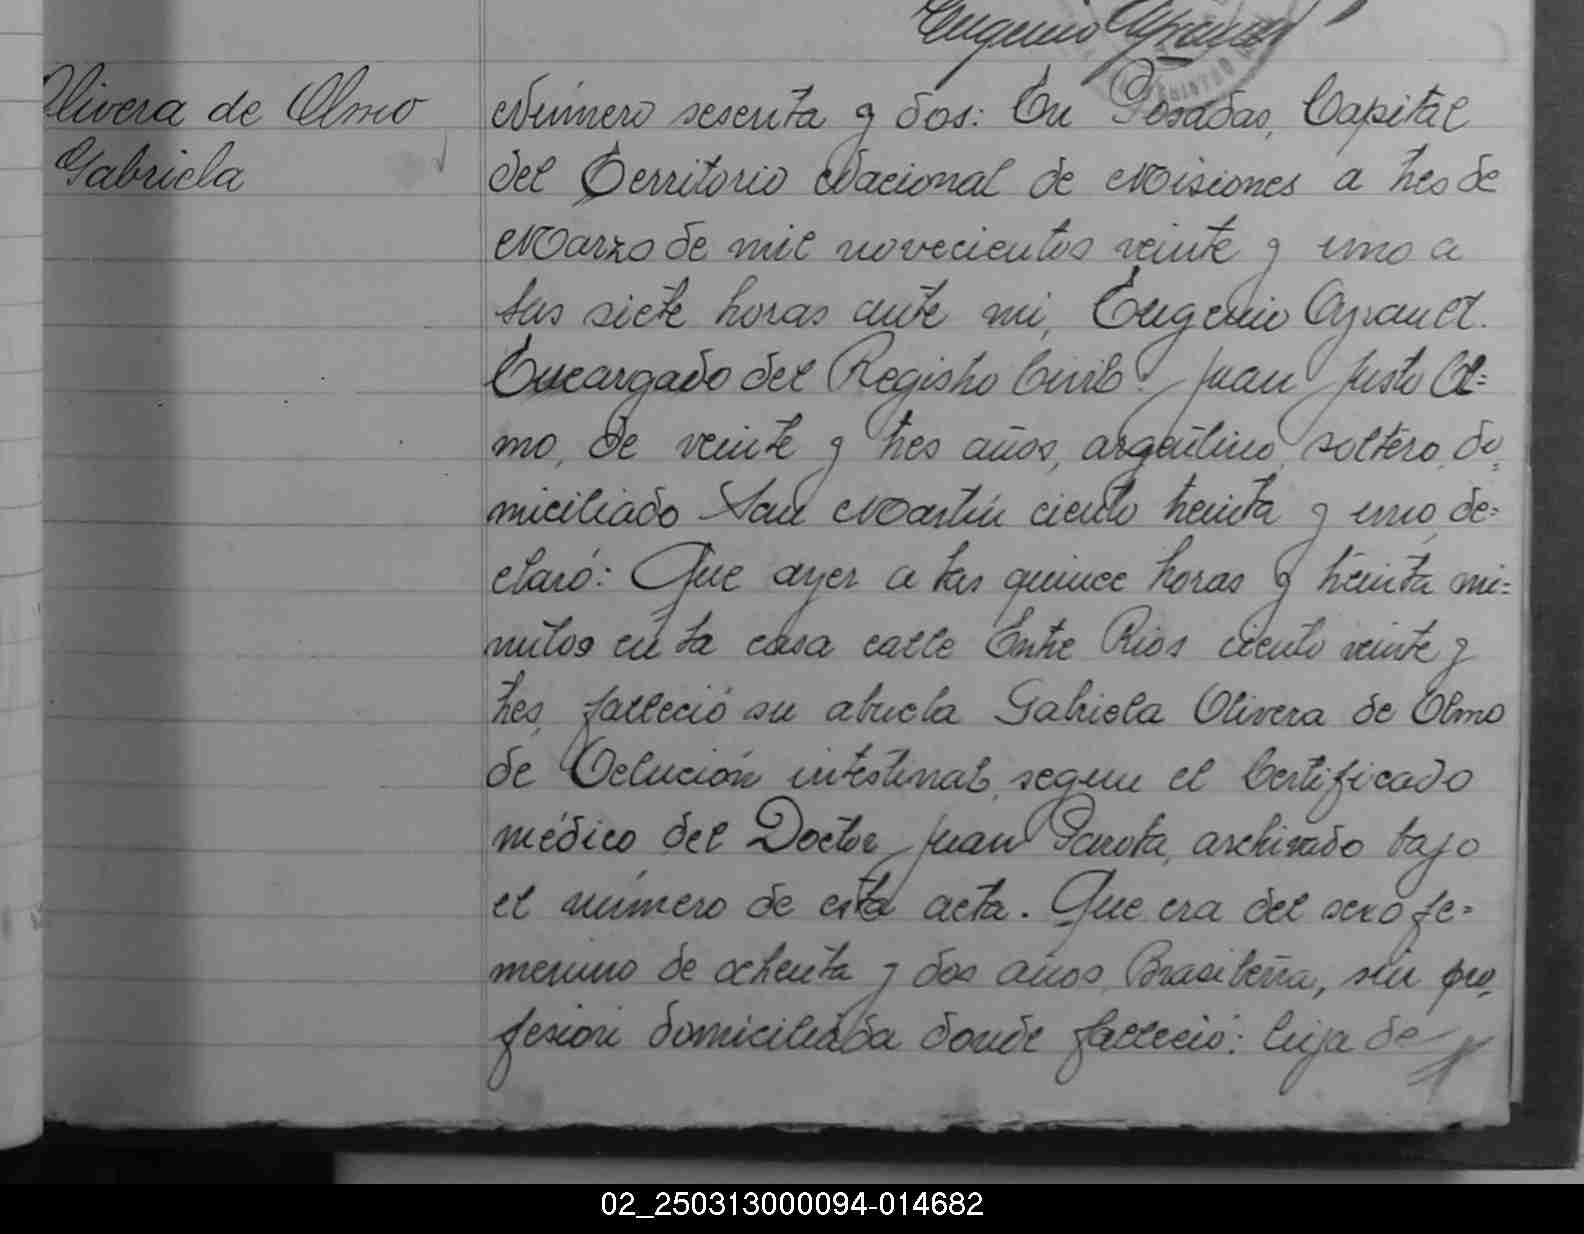 Eugenio Ayrault
Olivera de Olmo
Gabriela
Número sesenta y dos: En Posadas, Capital
del Territorio Nacional de Misiones a tres de
Marzo de mil novecientos veinte y uno a
las siete horas ante mi, Eugenio Ayrault.
Encargado del Registro Civil: Juan Justo Ol=
mo, de veinte y tres años, argentino, soltero, do=
miciliado San Martín ciento treinta y uno, de=
claró: Que ayer a las quince horas y treinta mi=
nutos en la casa calle Entre Rios ciento veinte y
tres, falleció su abuela Gabriela Olivera de Olmo
de Oclución intestinal, segun el Certificado
médico del Doctor Juan archivado bajo
el número de esta acta. Que era del sexo fe=
menino de ochenta y dos años, Brasileña, sin pro=
fesion domiciliada donde falleció: hija de
02_250313000094-014682